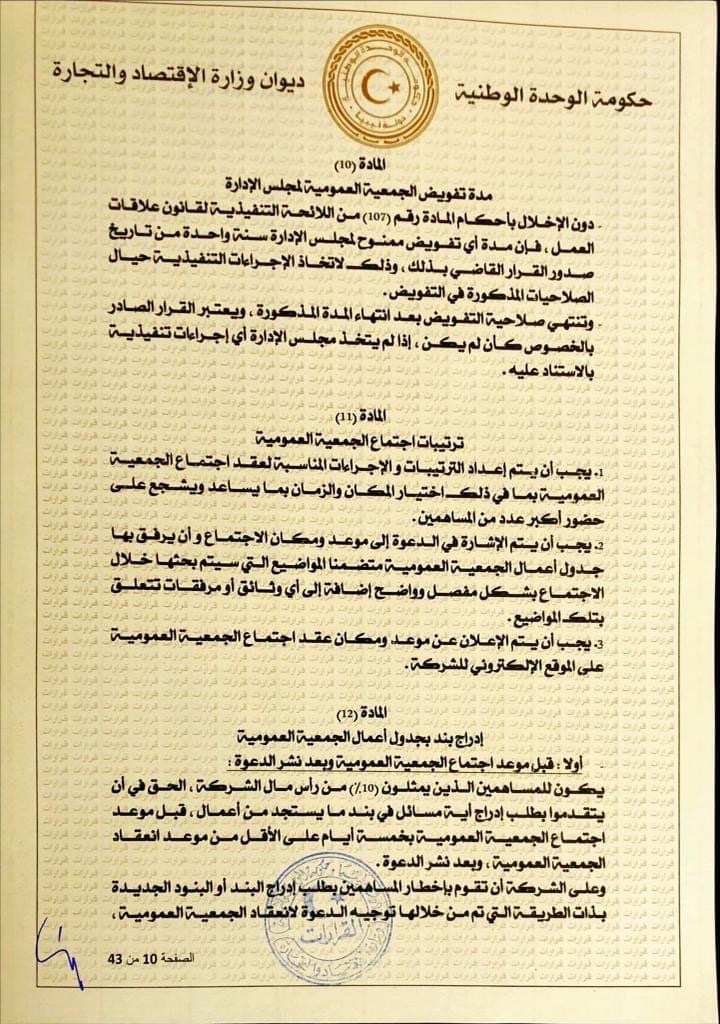 حكومة الوحدة الوطنية
ديوان وزارة الإقتصاد والتجارة
حكومة الوحدة الوطنية
دولة ليبيا
المادة (10)
مدة تفويض الجمعية العمومية لمجلس الإدارة
- دون الإخلال بأحكام المادة رقم (107) من اللائحة التنفيذية لقانون علاقات
العمل ، فإن مدة أي تفويض ممنوح لمجلس الإدارة سنة واحدة من تاريخ
صدور القرار القاضي بذلك ، وذلك لاتخاذ الإجراءات التنفيذية حيال
الصلاحيات المذكورة في التفويض.
- وتنتهي صلاحية التفويض بعد انتهاء المدة المذكورة ، ويعتبر القرار الصادر
بالخصوص كأن لم يكن ، إذا لم يتخذ مجلس الإدارة أي إجراءات تنفيذية
بالاستناد عليه .
المادة (11)
ترتيبات اجتماع الجمعية العمومية
1. يجب أن يتم إعداد الترتيبات و الإجراءات المناسبة لعقد اجتماع الجمعية
العمومية بما في ذلك اختيار المكان والزمان بما يساعد ويشجع على
حضور أكبر عدد من المساهمين.
2. يجب أن يتم الإشارة في الدعوة إلى موعد ومكان الاجتماع و أن يرفق بها
جدول أعمال الجمعية العمومية متضمنا المواضيع التي سيتم بحثها خلال
الاجتماع بشكل مفصل وواضح إضافة إلى أي وثائق أو مرفقات تتعلق
بتلك المواضيع .
3. يجب أن يتم الإعلان عن موعد ومكان عقد اجتماع الجمعية العمومية
على الموقع الإلكتروني للشركة .
المادة (12)
إدراج بند بجدول أعمال الجمعية العمومية
- أولا : قبل موعد اجتماع الجمعية العمومية وبعد نشر الدعوة :
يكون للمساهمين الذين يمثلون (10٪) من رأس مال الشركة ، الحق في أن
يتقدموا بطلب إدراج أية مسائل في بند ما يستجد من أعمال ، قبل موعد
اجتماع الجمعية العمومية بخمسة أيام على الأقل من موعد انعقاد
الجمعية العمومية ، وبعد نشر الدعوة .
وعلى الشركة أن تقوم بإخطار المساهمين بطلب إدراج البند أو البنود الجديدة
بذات الطريقة التي تم من خلالها توجيه الدعوة لانعقاد الجمعية العمومية ،
القرارات
الصفحة 10 من 43